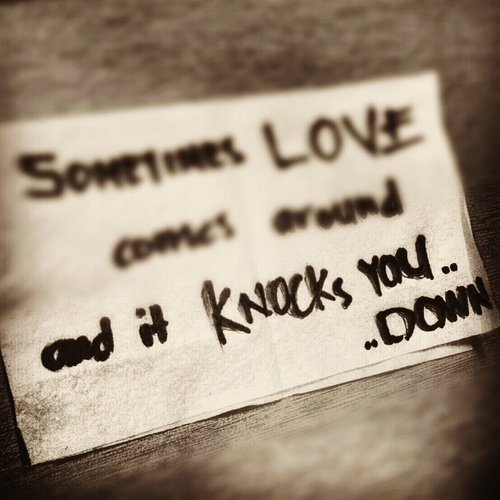 SOMETIMES LOVE
comes around
and it KNOCKs YOU..
..DOWN